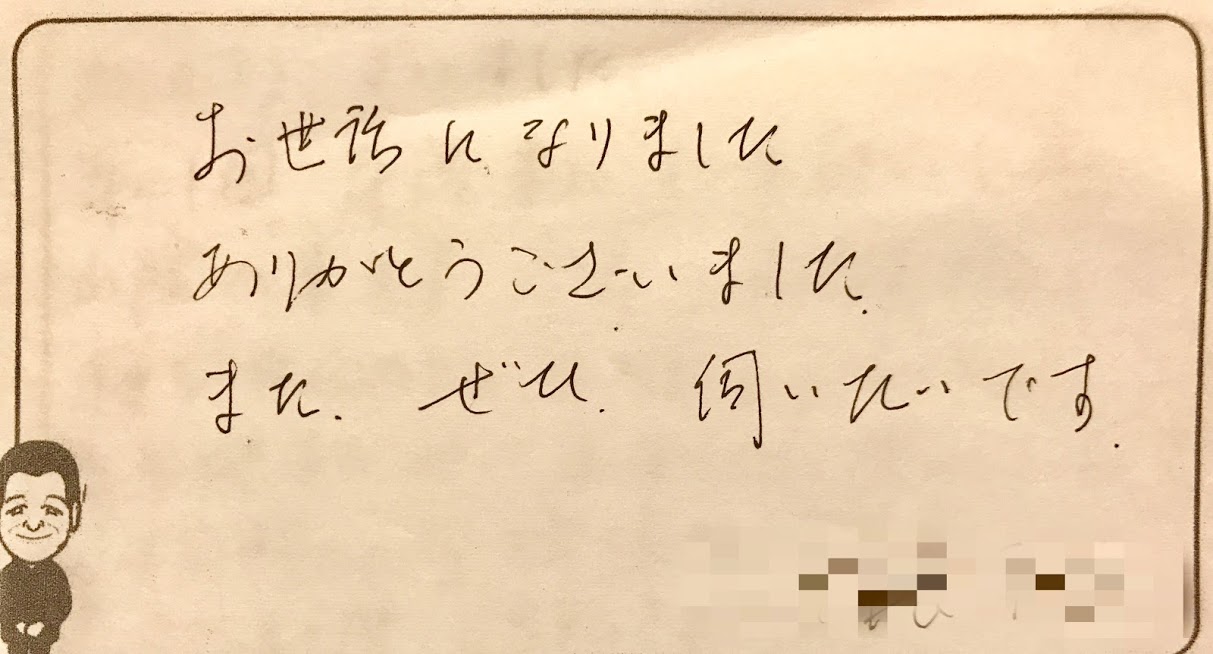 お世話になりました
ありがとうございました.
また. ぜひ. 伺いたいです.